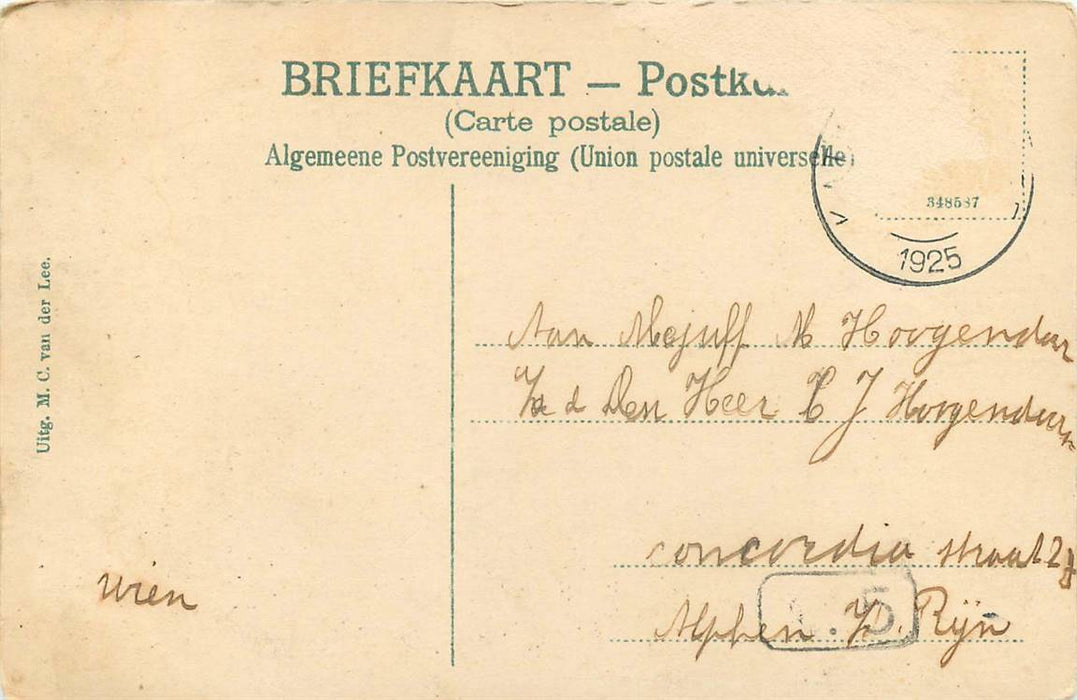 BRIEFKAART — Postka
(Carte postale)
Algemeene Postvereeniging (Union postale universelle)
348587
1925
Uitg. M. C. van der Lee.
Aan Mejuff M Hoogendoorn
Den Heer J Hoogendoorn
Concordia straat
Alphen Rijn
wien
5